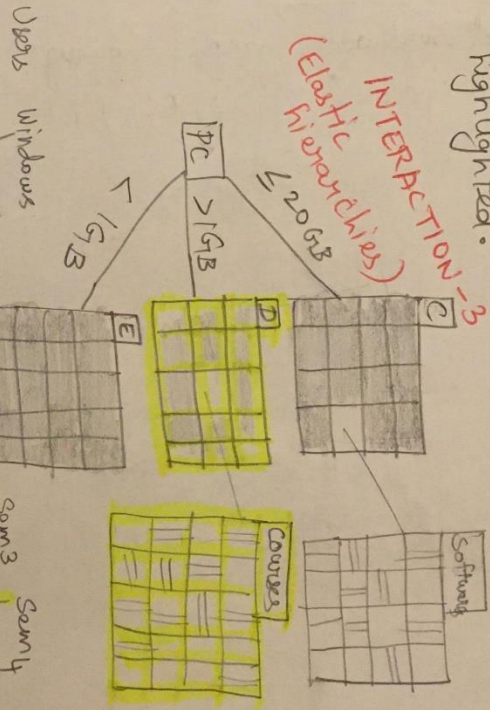 highlighted.
INTERACTION-3
(Elastic
hierarchies)
PC
≤ 20GB
>1GB
< 1GB
C
D
E
Software
Courses
Users Windows
Sem3 Sem4